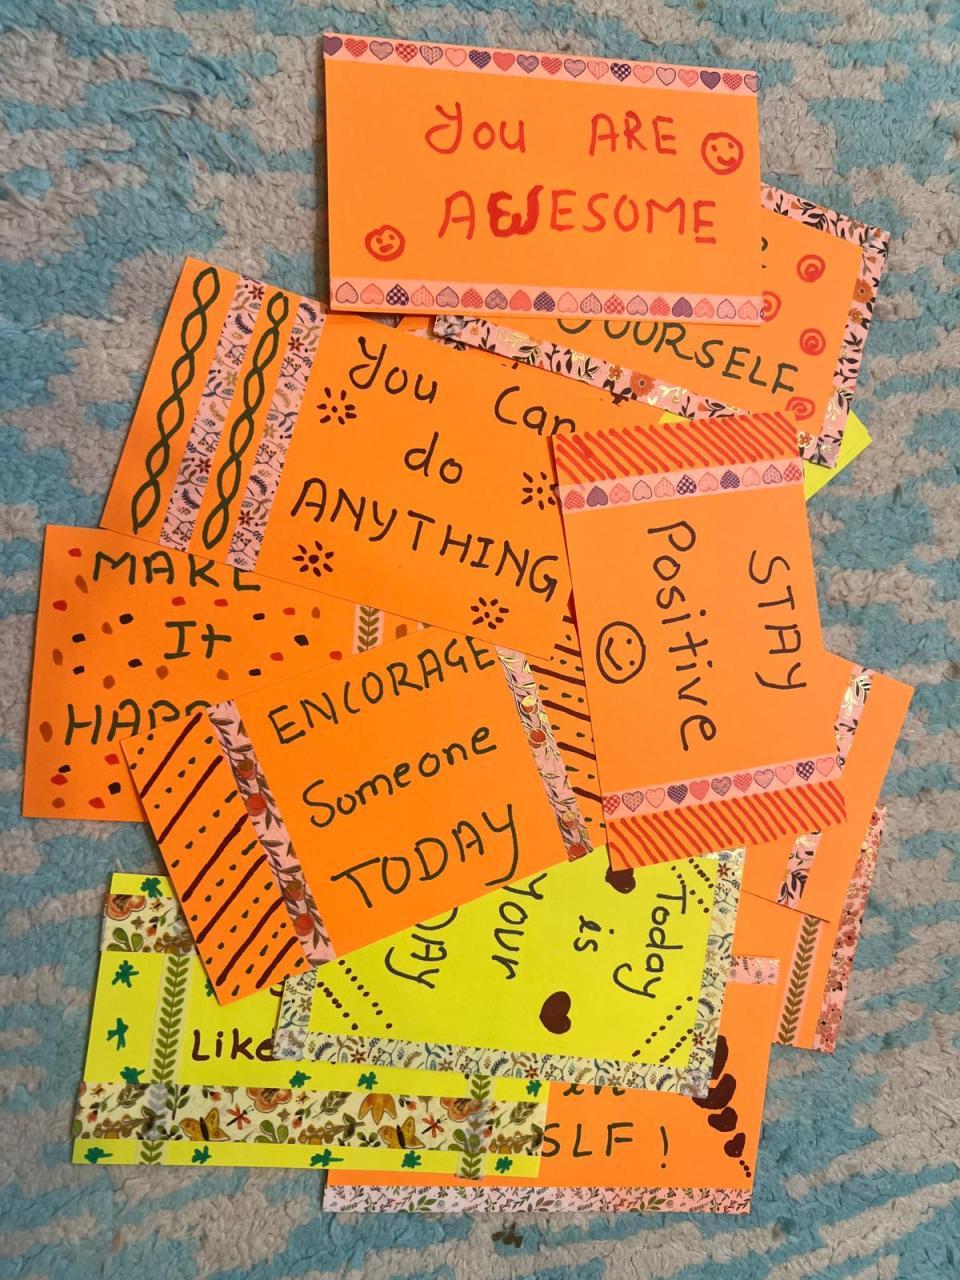 You ARE
AWESOME
YOURSELF
You Can
do
ANYTHING
STAY
Positive
MAKE
It
ENCORAGE
Someone
TODAY
Today
is
your
Like
in